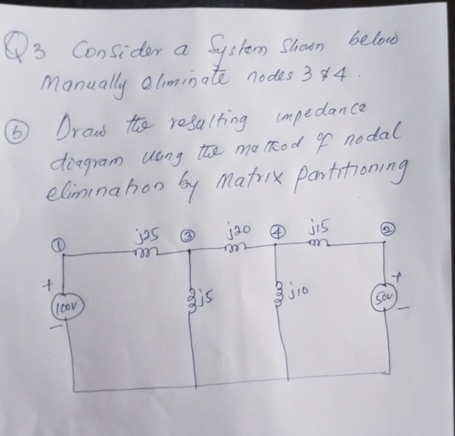 Q3 Consider a System Shown below
Manually eliminate nodes 3 & 4.
(b) Draw the resulting impedance
diagram using the method of nodal
elimination by Matrix partitioning
① j25 ③ j20 ④ j15 ②
+ 100V - j5 j10 50V + -